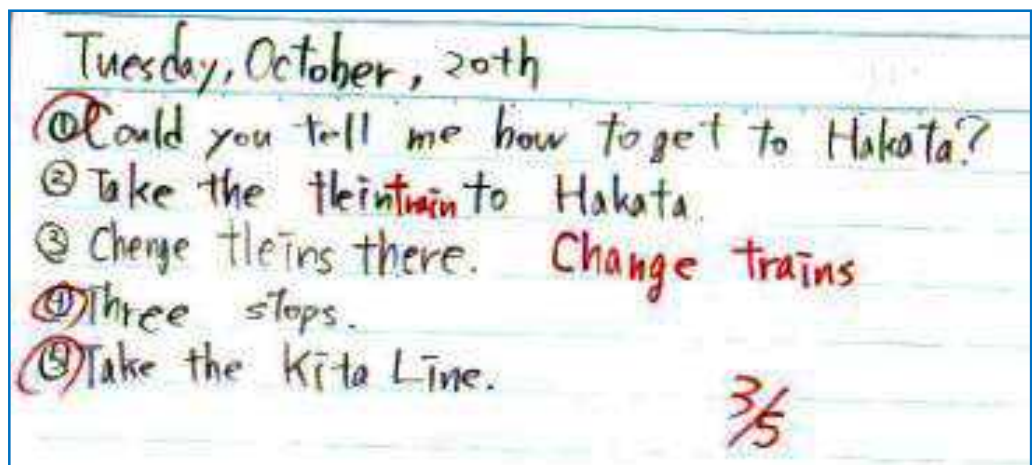 Tuesday, October, 20th
① Could you tell me how to get to Hakata?
② Take the tleintrain to Hakata.
③ Chenge tleins there. Change trains
④ Three stops.
⑤ Take the Kita Line.
3/5